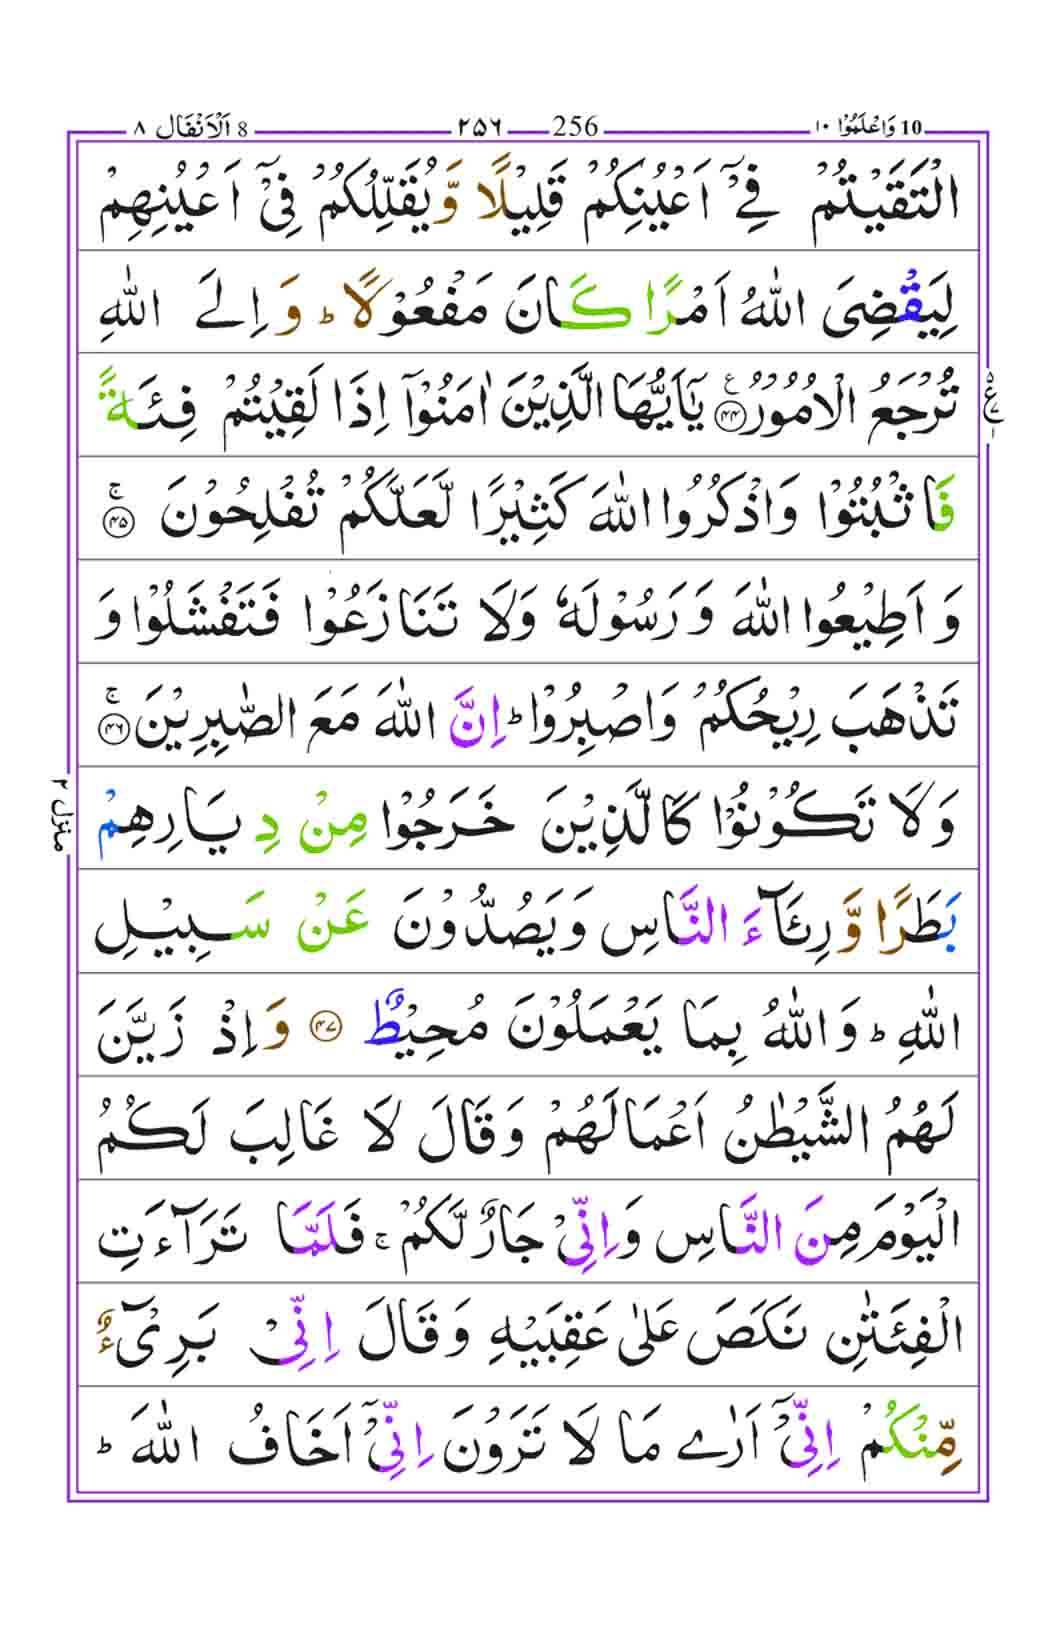 10 وَاعْلَمُوْۤا ١٠ 256 ٢٥٦ 8 اَلْاَنْفَال ٨
الْتَقَيْتُمْ فِيْۤ اَعْيُنِكُمْ قَلِيْلًا وَّيُقَلِّلُكُمْ فِيْۤ اَعْيُنِهِمْ
لِيَقْضِيَ اللّٰهُ اَمْرًا كَانَ مَفْعُوْلًا ؕ وَ اِلَى اللّٰهِ
تُرْجَعُ الْاُمُوْرُ ۟ع ﴿۴۴﴾ يٰۤاَيُّهَا الَّذِيْنَ اٰمَنُوْۤا اِذَا لَقِيْتُمْ فِئَةً
فَاثْبُتُوْا وَاذْكُرُوا اللّٰهَ كَثِيْرًا لَّعَلَّكُمْ تُفْلِحُوْنَ ۚ ﴿۴۵﴾
وَ اَطِيْعُوا اللّٰهَ وَ رَسُوْلَهٗ وَلَا تَنَازَعُوْا فَتَفْشَلُوْا وَ
تَذْهَبَ رِيْحُكُمْ وَاصْبِرُوْا ؕ اِنَّ اللّٰهَ مَعَ الصّٰبِرِيْنَ ۚ ﴿۴۶﴾
وَلَا تَكُوْنُوْا كَالَّذِيْنَ خَرَجُوْا مِنْ دِيَارِهِمْ
بَطَرًا وَّرِئَآءَ النَّاسِ وَيَصُدُّوْنَ عَنْ سَبِيْلِ
اللّٰهِ ؕ وَاللّٰهُ بِمَا يَعْمَلُوْنَ مُحِيْطٌ ﴿۴۷﴾ وَاِذْ زَيَّنَ
لَهُمُ الشَّيْطٰنُ اَعْمَالَهُمْ وَقَالَ لَا غَالِبَ لَكُمُ
الْيَوْمَ مِنَ النَّاسِ وَاِنِّيْ جَارٌ لَّكُمْ ۚ فَلَمَّا تَرَآءَتِ
الْفِئَتٰنِ نَكَصَ عَلٰى عَقِبَيْهِ وَقَالَ اِنِّيْ بَرِيْٓءٌ
مِّنْكُمْ اِنِّيْۤ اَرٰى مَا لَا تَرَوْنَ اِنِّيْۤ اَخَافُ اللّٰهَ ؕ
ع
منزل ٢